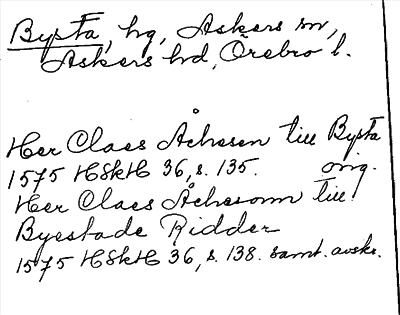 Bysta, hg, Askers sn,
Askers hd, Örebro l.
Her Claes Åchesen till Bysta
1575 HSkH 36, s. 135. orig.
Her Claes Åchesonn till
Byestade Ridder
1575 HSkH 36, s. 138. samt. avskr.